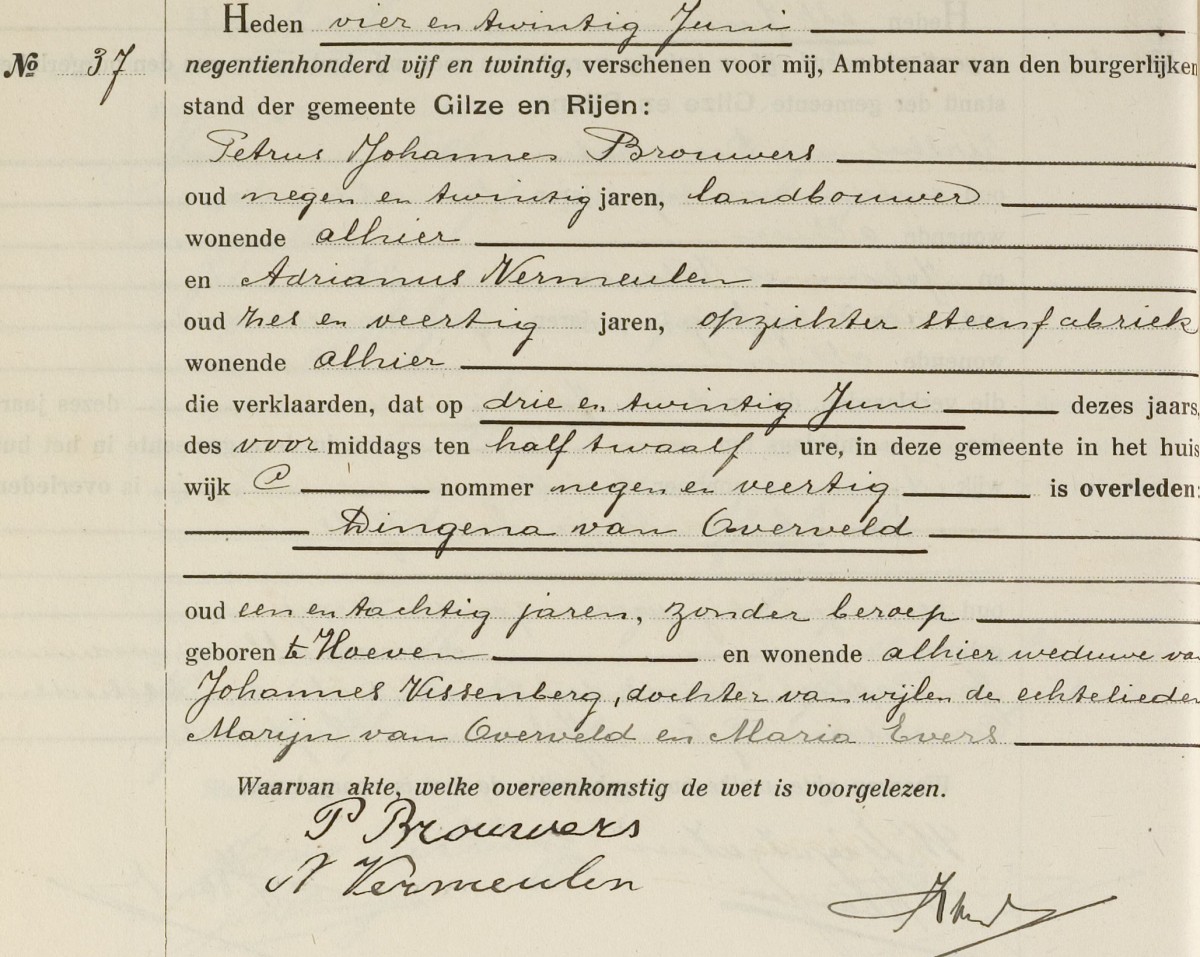 Heden vier en twintig Juni
No 37 negentienhonderd vijf en twintig, verschenen voor mij, Ambtenaar van den burgerlijken
stand der gemeente Gilze en Rijen:
Petrus Johannes Brouwers
oud negen en twintig jaren, landbouwer
wonende alhier
en Adrianus Vermeulen
oud zes en veertig jaren, opzichter steenfabriek
wonende alhier
die verklaarden, dat op drie en twintig Juni dezes jaars,
des voor middags ten half twaalf ure, in deze gemeente in het huis
wijk C nommer negen en veertig is overleden:
Dingena van Overveld
oud een en tachtig jaren, zonder beroep
geboren te Hoeven en wonende alhier weduwe van
Johannes Vissenberg, dochter van wijlen de echtelieden
Marijn van Overveld en Maria Evers
Waarvan akte, welke overeenkomstig de wet is voorgelezen.
P Brouwers
A Vermeulen